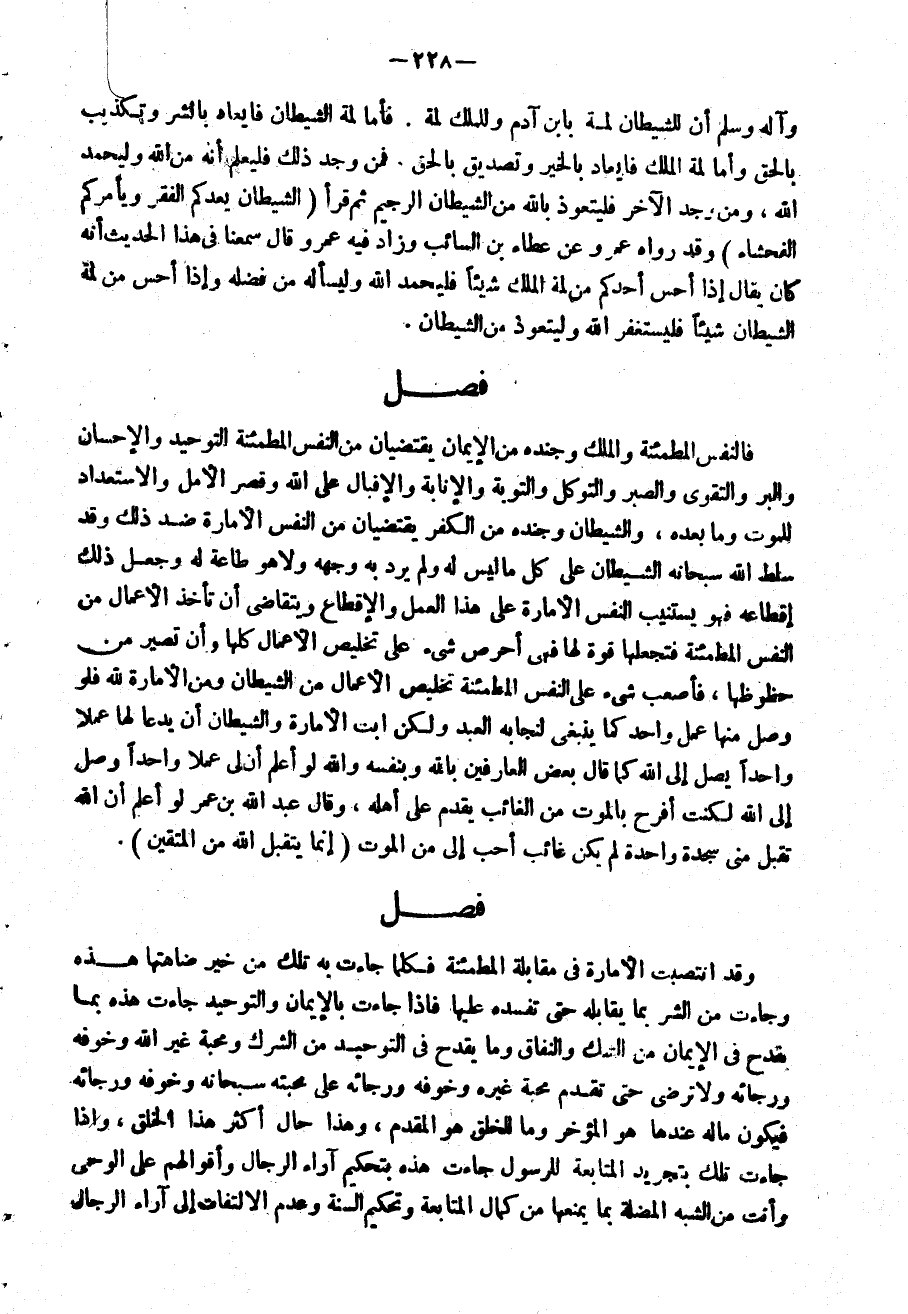 — ٢٢٨ —
وآله وسلم أن للشيطان لمة بابن آدم وللملك لمة . فأما لمة الشيطان فايعاد بالشر وتكذيب
بالحق وأما لمة الملك فايعاد بالخير وتصديق بالحق . فمن وجد ذلك فليعلم أنه من الله وليحمد
الله ، ومن وجد الآخر فليتعوذ بالله من الشيطان الرجيم ثم قرأ ( الشيطان يعدكم الفقر ويأمركم
الفحشاء ) وقد رواه عمرو عن عطاء بن السائب وزاد فيه عمرو قال سمعنا فى هذا الحديث أنه
كان يقال إذا أحس أحدكم من لمة الملك شيئاً فليحمد الله وليسأله من فضله وإذا أحس من لمة
الشيطان شيئاً فليستغفر الله وليتعوذ من الشيطان .
فصل
فالنفس المطمئنة والملك وجنده من الإيمان يقتضيان من النفس المطمئنة التوحيد والإحسان
والبر والتقوى والصبر والتوكل والتوبة والإنابة والإقبال على الله وقصر الأمل والاستعداد
للموت وما بعده ، والشيطان وجنده من الكفر يقتضيان من النفس الأمارة ضد ذلك وقد
سلط الله سبحانه الشيطان على كل ما ليس له ولم يرد به وجهه ولا هو طاعة له وجعل ذلك
إقطاعه فهو يستنيب النفس الأمارة على هذا العمل والإقطاع ويتقاضى أن تأخذ الأعمال من
النفس المطمئنة فتجعلها قوة لها فهى أحرص شىء على تخليص الأعمال كلها وأن تصير من
حظوظها ، فأصعب شىء على النفس المطمئنة تخليص الأعمال من الشيطان ومن الأمارة لله فلو
وصل منها عمل واحد كما ينبغى لنجابه العبد ولكن ابت الأمارة والشيطان أن يدعا لها عملا
واحداً يصل إلى الله كما قال بعض العارفين بالله وبنفسه والله لو أعلم أن لى عملا واحداً وصل
إلى الله لكنت أفرح بالموت من الغائب يقدم على أهله ، وقال عبد الله بن عمر لو أعلم أن الله
تقبل منى سجدة واحدة لم يكن غائب أحب إلى من الموت ( إنما يتقبل الله من المتقين ) .
فصل
وقد انتصبت الأمارة فى مقابلة المطمئنة فكلما جاءت به تلك من خير ضاهتها هذه
وجاءت من الشر بما يقابله حتى تفسده عليها فاذا جاءت بالإيمان والتوحيد جاءت هذه بما
يقدح فى الإيمان من الشك والنفاق وما يقدح فى التوحيد من الشرك ومحبة غير الله وخوفه
ورجائه ولا ترضى حتى تقدم محبة غيره وخوفه ورجائه على محبته سبحانه وخوفه ورجائه
فيكون ماله عندها هو المؤخر وما للخلق هو المقدم ، وهذا حال أكثر هذا الخلق ، وإذا
جاءت تلك بتجريد المتابعة للرسول جاءت هذه بتحكيم آراء الرجال وأقوالهم على الوحى
وأتت من الشبه المضلة بما يمنعها من كمال المتابعة وتحكيم السنة وعدم الالتفات إلى آراء الرجال